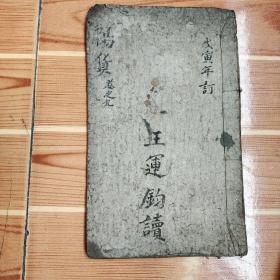 戊寅年訂
王運鈞讀
陽貨
卷之九